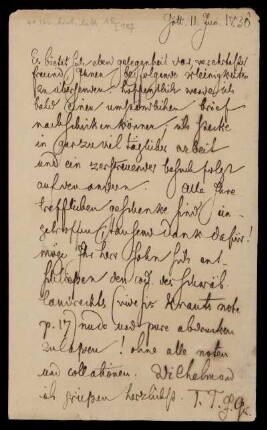 Gött. 11 Jun. 1836
Es bietet sich eben gelegenheit dar, verehrtester
freund, Ihnen beifolgende kleinigkeiten
zu übersenden. hoffentlich werde ich
bald einen umständlichen brief
nachschicken können, ich stecke
in zu viel täglicher arbeit
und ein zerstreuender besuch folgt
auf den andern. Alle Ihre
trefflichen geschenke sind
eingetroffen, tausend dank dafür!
möge Ihr herr sohn sich
entschliessen den cod. des schwäb.
landrechts (vide Krauts note
p. 17) nude und pure abdrucken
zu lassen! ohne alle noten
und collationen. Wilhelm und
ich grüssen herzlichst.